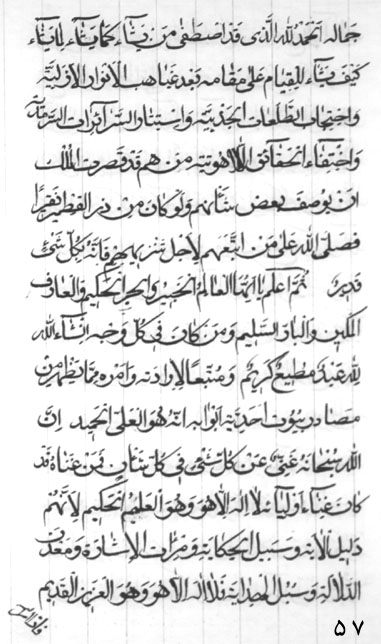 جماله الحمد لله الذی قد اصطفی من یشاء کما یشاء لما یشاء
کیف یشاء للقیام علی مقامه بعد غیاهب الانوار الازلیة
واحتجاب الطلعات الجذبیة واستتار السرائرات السرمدیة
واختفاء الحقائق اللاهوتیة من هم قد قصرت الملک
ان یوصف بعض شأنهم ولو کان من ذر القطیر نقیرا
فصلی الله علی من اتبعهم لاجل بهم فانه بکل شئ
قدیر ثم اعلم یا ایها العالم الخبیر والحبر الحکیم والعارف
المکین والبار السلیم ومن کان فی کل وجه انشاء الله
لله عبد مطیع کریم ومتبعا لارادته وامره مما یظهر من
مصادر بیوت احدیة ابوابه انه هو العلی الحمید ان
الله سبحانه غنی عن کل شئ فی کل شأن فمن غناه قد
کان غناء اولیائه لا اله الا هو وهو العلیم الحکیم لانهم
دلیل لآیته وسبیل لحکایته ومرات الاشارة ومعدن
الدلالة وسبل الهدایة فلا اله الا هو وهو العزیز القدیم
۵۷